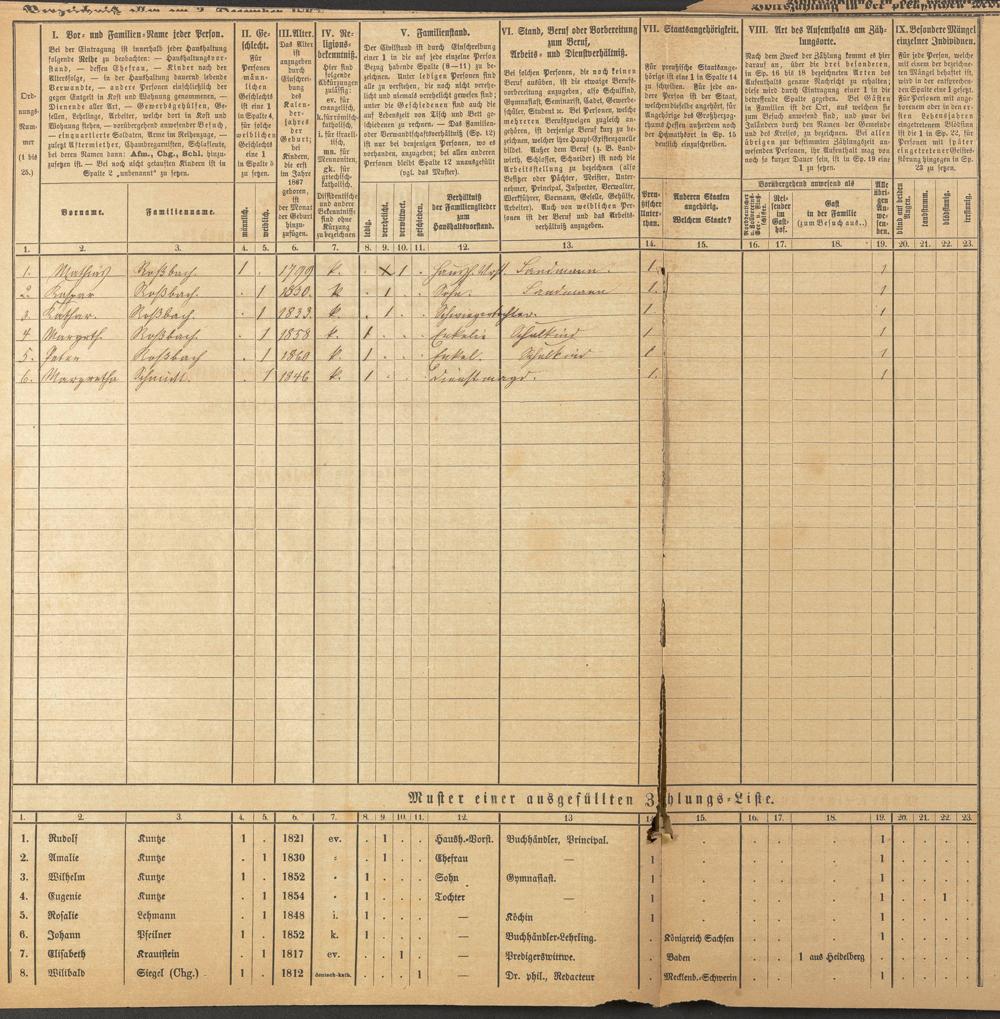 I. Vor- und Familien-Name jeder Person.
Bei der Eintragung ist innerhalb jeder Haushaltung
folgende Reihe zu beobachten: — Haushaltungsvor-
stand, — dessen Ehefrau, — Kinder nach der
Altersfolge, — in der Haushaltung dauernd lebende
Verwandte, — andere Personen einschließlich der
gegen Entgelt in Kost und Wohnung genommenen, —
Dienende aller Art, — Gewerbsgehülfen, Ge-
sellen, Lehrlinge, Arbeiter, welche dort in Kost und
Wohnung stehen, — vorübergehend anwesender Besuch,
— einquartierte Soldaten, Arme im Reihenzuge, —
zuletzt Aftermiether, Chambregarnisten, Schlafleute,
bei deren Namen dann: Afm., Chg., Schl. hinzu-
zusetzen ist. — Bei noch nicht getauften Kindern ist in
Spalte 2 „unbenannt" zu setzen.
Ord-
nungs-
Num-
mer
(1 bis
25.)
Vorname. Familienname.
II. Ge-
schlecht.
Für
Personen
männ-
lichen
Geschlechts
ist eine 1
in Spalte 4,
für solche
weiblichen
Geschlechts
eine 1
in Spalte 5
zu setzen.
männlich.
weiblich.
III. Alter.
Das Alter
ist
anzugeben
durch
Einschrei-
bung
des
Kalen-
derjahres
der
Geburt;
bei
Kindern,
die erst
im Jahre
1867
geboren,
ist
der Monat
der Geburt
hinzu-
zufügen.
IV. Re-
ligions-
bekenntniß.
Hier sind
folgende
Abkürzungen
zulässig:
ev. für
evangelisch,
k. für römisch-
katholisch,
i. für israeli-
tisch,
mn. für
Mennoniten,
gk. für
griechisch-
katholisch.
Dissidentische
und andere
Bekenntnisse
sind ohne
Kürzung
zu bezeichnen
V. Familienstand.
Der Civilstand ist durch Einschreibung
einer 1 in die auf jede einzelne Person
Bezug habende Spalte (8—11) zu be-
zeichnen. Unter ledigen Personen sind
alle zu verstehen, die noch nicht verehe-
licht und niemals verehelicht gewesen sind;
unter die Geschiedenen sind auch die
auf Lebenszeit von Tisch und Bett ge-
schiedenen zu rechnen. — Das Familien-
oder Verwandtschaftsverhältniß (Sp. 12)
ist nur bei denjenigen Personen, wo es
vorhanden, anzugeben; bei allen anderen
Personen bleibt Spalte 12 unausgefüllt
(vgl. das Muster).
ledig.
verehelicht.
verwittwet.
geschieden.
Verhältniß
der Familienglieder
zum
Haushaltsvorstand.
VI. Stand, Beruf oder Vorbereitung
zum Beruf,
Arbeits- und Dienstverhältniß.
Bei solchen Personen, die noch keinen
Beruf ausüben, ist die etwaige Berufs-
vorbereitung anzugeben, also Schulkind,
Gymnasiast, Seminarist, Cadet, Gewerbe-
schüler, Student u. s. w. Bei Personen,
welche mehreren Berufszweigen zugleich an-
gehören, ist derjenige Beruf kurz zu bezeich-
nen, welcher ihre Haupt-Existenzquelle
bildet. Außer dem Beruf (z. B. Land-
wirth, Schlosser, Schneider) ist noch die
Arbeitsstellung zu bezeichnen (also
Besitzer oder Pächter, Meister, Unter-
nehmer, Principal, Inspector, Verwalter,
Werkführer, Vormann, Geselle, Gehülfe,
Arbeiter). Auch von weiblichen Per-
sonen ist der Beruf und das Arbeits-
verhältniß anzugeben.
VII. Staatsangehörigkeit.
Für preußische Staatsange-
hörige ist eine 1 in Spalte 14
zu schreiben. Für jede an-
dere Person ist der Staat,
welchem dieselbe angehört, für
Angehörige des Großherzog-
thums Hessen außerdem noch
der Heimathsort in Sp. 15
deutlich einzuschreiben.
Preu-
ßischer
Unter-
than.
Anderen Staaten
angehörig.
Welchem Staate?
VIII. Art des Aufenthalts am Zäh-
lungsorte.
Nach dem Zweck der Zählung kommt es hier
darauf an, über die drei besonderen,
in Sp. 16 bis 18 bezeichneten Arten des
Aufenthalts genaue Nachricht zu erhalten;
diese wird durch Eintragung einer 1 in die
betreffende Spalte gegeben. Bei Gästen
in Familien ist der Ort, aus welchem sie
zum Besuch anwesend sind, und zwar bei
Inländern durch den Namen der Gemeinde
und des Kreises, zu bezeichnen. Bei allen
übrigen zur bestimmten Zählungszeit an-
wesenden Personen, ihr Aufenthalt mag von
noch so kurzer Dauer sein, ist in Sp. 19 eine
1 zu setzen.
Vorübergehend anwesend als
Reisender
im Gast-
hof.
Gast
in der Familie
(zum Besuch aus..)
Alle
übri-
gen
An-
wesen-
den.
IX. Besondere Mängel
einzelner Individuen.
Für jede Person, welche
mit einem der bezeichne-
ten Mängel behaftet ist,
wird in der entsprechen-
den Spalte eine 1 gesetzt.
Für Personen mit ange-
bornem oder in den er-
sten Lebensjahren
eingetretenem Blödsinn
ist die 1 in Sp. 22, für
Personen mit später
eingetretener Geistes-
störung hingegen in Sp.
23 zu setzen.
blind auf beiden
Augen.
taubstumm.
blödsinnig.
irrsinnig.
1. 2. 3. 4. 5. 6. 7. 8. 9. 10. 11. 12. 13. 14. 15. 16. 17. 18. 19. 20. 21. 22. 23.
1. Mathias Roßbach. 1 . 1799 k. . x 1 . Haush. Vorst. Landmann. 1. 1
2. Kaspar Roßbach. . 1 1830. k. . 1 . . Sohn. Landmann 1. 1
3. Kathar. Roßbach. . 1 1833. k. . 1 . . Schwiegertochter. 1 1
4 Margreth. Roßbach. . 1 1858 k. 1 . . . Enkelin Schulkind 1 1
5. Peter Roßbach . 1 1860 k. 1 . . . Enkel. Schulkind 1 1
6. Margretha Schmidt. . 1 1846 k. 1 . . . Dienstmagd. 1. 1
Muster einer ausgefüllten Zählungs-Liste.
1. 2. 3. 4. 5. 6. 7. 8. 9. 10. 11. 12. 13 14 15. 16. 17. 18. 19. 20. 21. 22. 23.
1. Rudolf Kuntze 1 . 1821 ev. . 1 . . Haush.-Vorst. Buchhändler, Principal. . . . . 1 . . . .
2. Amalie Kuntze . 1 1830 „ . 1 . . Ehefrau — 1 . . . . 1 . . . .
3. Wilhelm Kuntze 1 . 1852 „ 1 . . . Sohn Gymnasiast. 1 . . . . 1 . . . .
4. Eugenie Kuntze . 1 1854 „ 1 . . . Tochter — 1 . . . . 1 . . 1 .
5. Rosalie Lehmann . 1 1848 i. 1 . . . — Köchin 1 . . . . 1 . . . .
6. Johann Pfeilner 1 . 1852 k. 1 . . . — Buchhändler-Lehrling. . Königreich Sachsen . . . 1 . . . .
7. Elisabeth Krautstein . 1 1817 ev. . . 1 . — Predigerswittwe. . Baden . . 1 aus Heidelberg . . . . .
8. Wilibald Siegel (Chg.) 1 . 1812 deutsch-kath. . . . 1 — Dr. phil., Redacteur . Mecklenb.-Schwerin . . . 1 . . . .